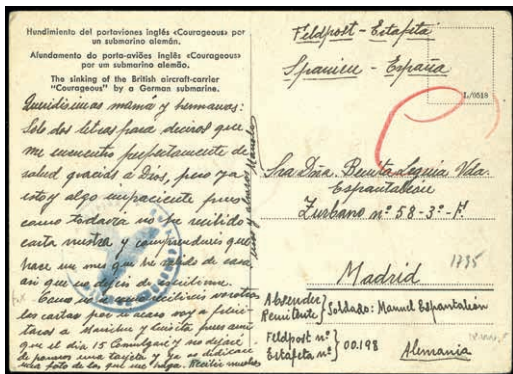 Hundimiento del portaviones inglés «Courageous» por
un submarino alemán.
Afundamento do porta-aviões inglês «Courageous»
por um submarino alemão.
The sinking of the British aircraft-carrier
"Courageous" by a German submarine.
Queridísimas mamá y hermanas:
Solo dos letras para deciros que
me encuentro perfectamente de
salud gracias a Dios, pero ya
estoy algo impaciente pues
como todavía no he recibido
carta vuestra y comprenderéis que
hace un mes que he salido de casa
así que no dejéis de escribirme.
las cartas por si acaso voy a felici-
taros a
que el día 15 Comulgaré y no dejaré
de poneros una tarjeta y ya no
una foto de los que me haga. Recibir muchos
besos y abrazos Manolo
Feldpost - Estafeta
Spanien - España
L/0518
Sra Dña. Benita Leguía Vda.
Espantaleón
Zurbano nº 58-3º-F.
Madrid
1795
Absender
Remitente } Soldado: Manuel Espantaleón
Feldpost nº
Estafeta nº } 00.198
Alemania